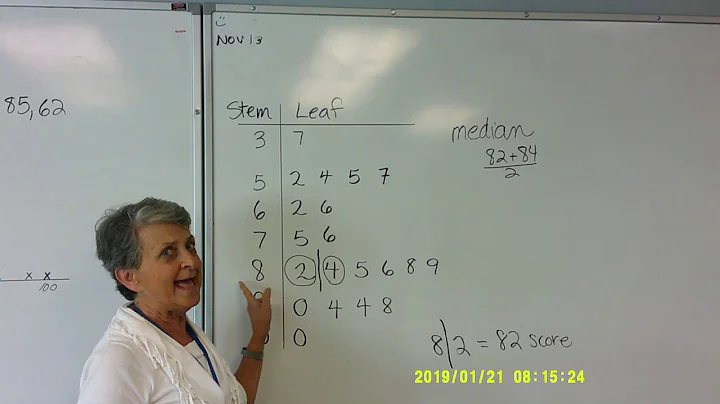 NOV 13
85,62
Stem | Leaf
3 | 7
5 | 2 4 5 7
6 | 2 6
7 | 5 6
8 | 2 | 4 5 6 8 9
0 4 4 8
0 | 0
median
82+84
2
8|2 = 82 score
x x
100
2019/01/21 08:15:24